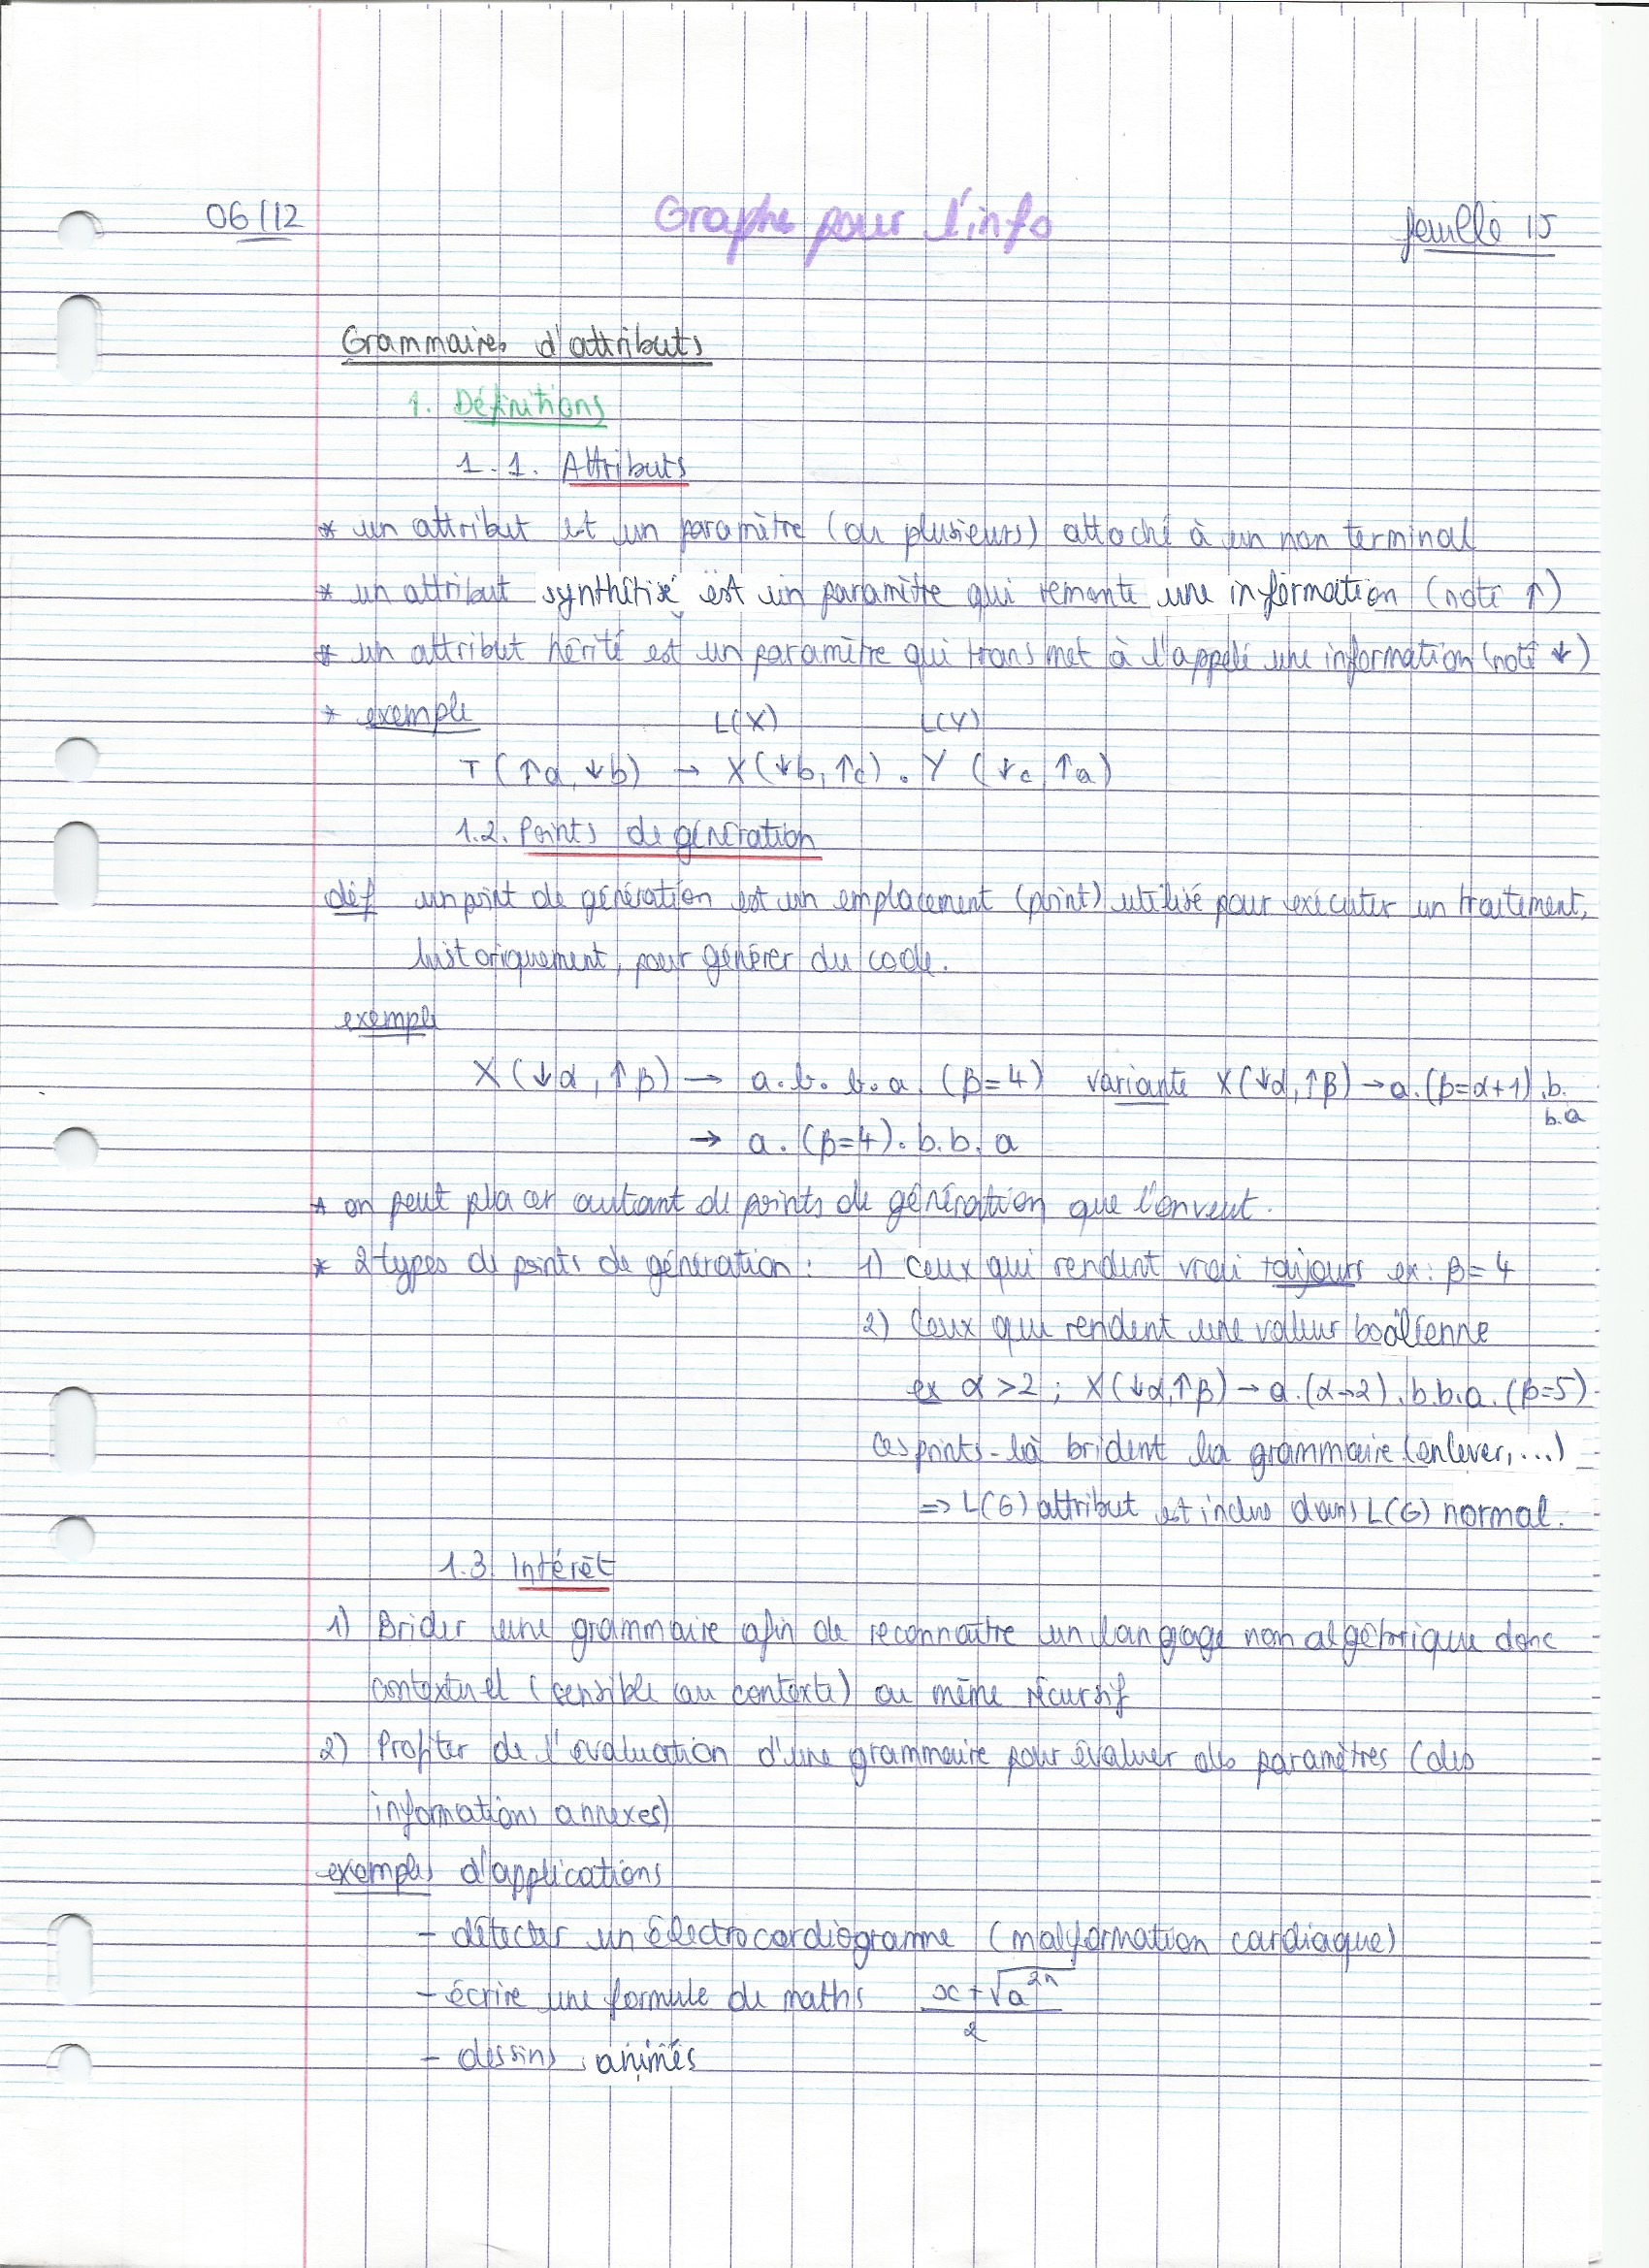 06/12 Graphe pour l'info feuille 15
Grammaires d'attributs
1. Définitions
1.1. Attributs
* un attribut est un paramètre (ou plusieurs) attaché à un non terminal
* un attribut synthétisé est un paramètre qui remonte une information (noté ↑)
* un attribut hérité est un paramètre qui transmet à l'appelé une information (noté ↓)
* exemple L(X) L(Y)
T(↑a, ↓b) → X(↓b, ↑c) . Y (↓c, ↑a)
1.2. Points de génération
déf un point de génération est un emplacement (point) utilisé pour exécuter un traitement,
historiquement, pour générer du code.
exemple
X(↓α, ↑β) → a.b.b.a.(β=4) variante X(↓α, ↑β) → a.(β=α+1).b.
b.a
→ a.(β=4).b.b.a
* on peut placer autant de points de génération que l'on veut.
* 2 types de points de génération : 1) ceux qui rendent vrai toujours ex: β=4
2) Ceux qui rendent une valeur booléenne
ex α>2 ; X(↓α,↑β) → a.(α>2).b.b.a.(β=5).
Ces points-là brident la grammaire (enlever,...)
⇒ L(G) attribut est inclus dans L(G) normal.
1.3 Intérêt
1) Brider une grammaire afin de reconnaître un langage non algébrique donc
contextuel (sensible au contexte) ou même récursif
2) Profiter de l'évaluation d'une grammaire pour évaluer des paramètres (des
informations annexes)
exemples d'applications
- détecter un électrocardiogramme (malformation cardiaque)
- écrire une formule de maths (x+√a²ⁿ)/2
- dessins animés